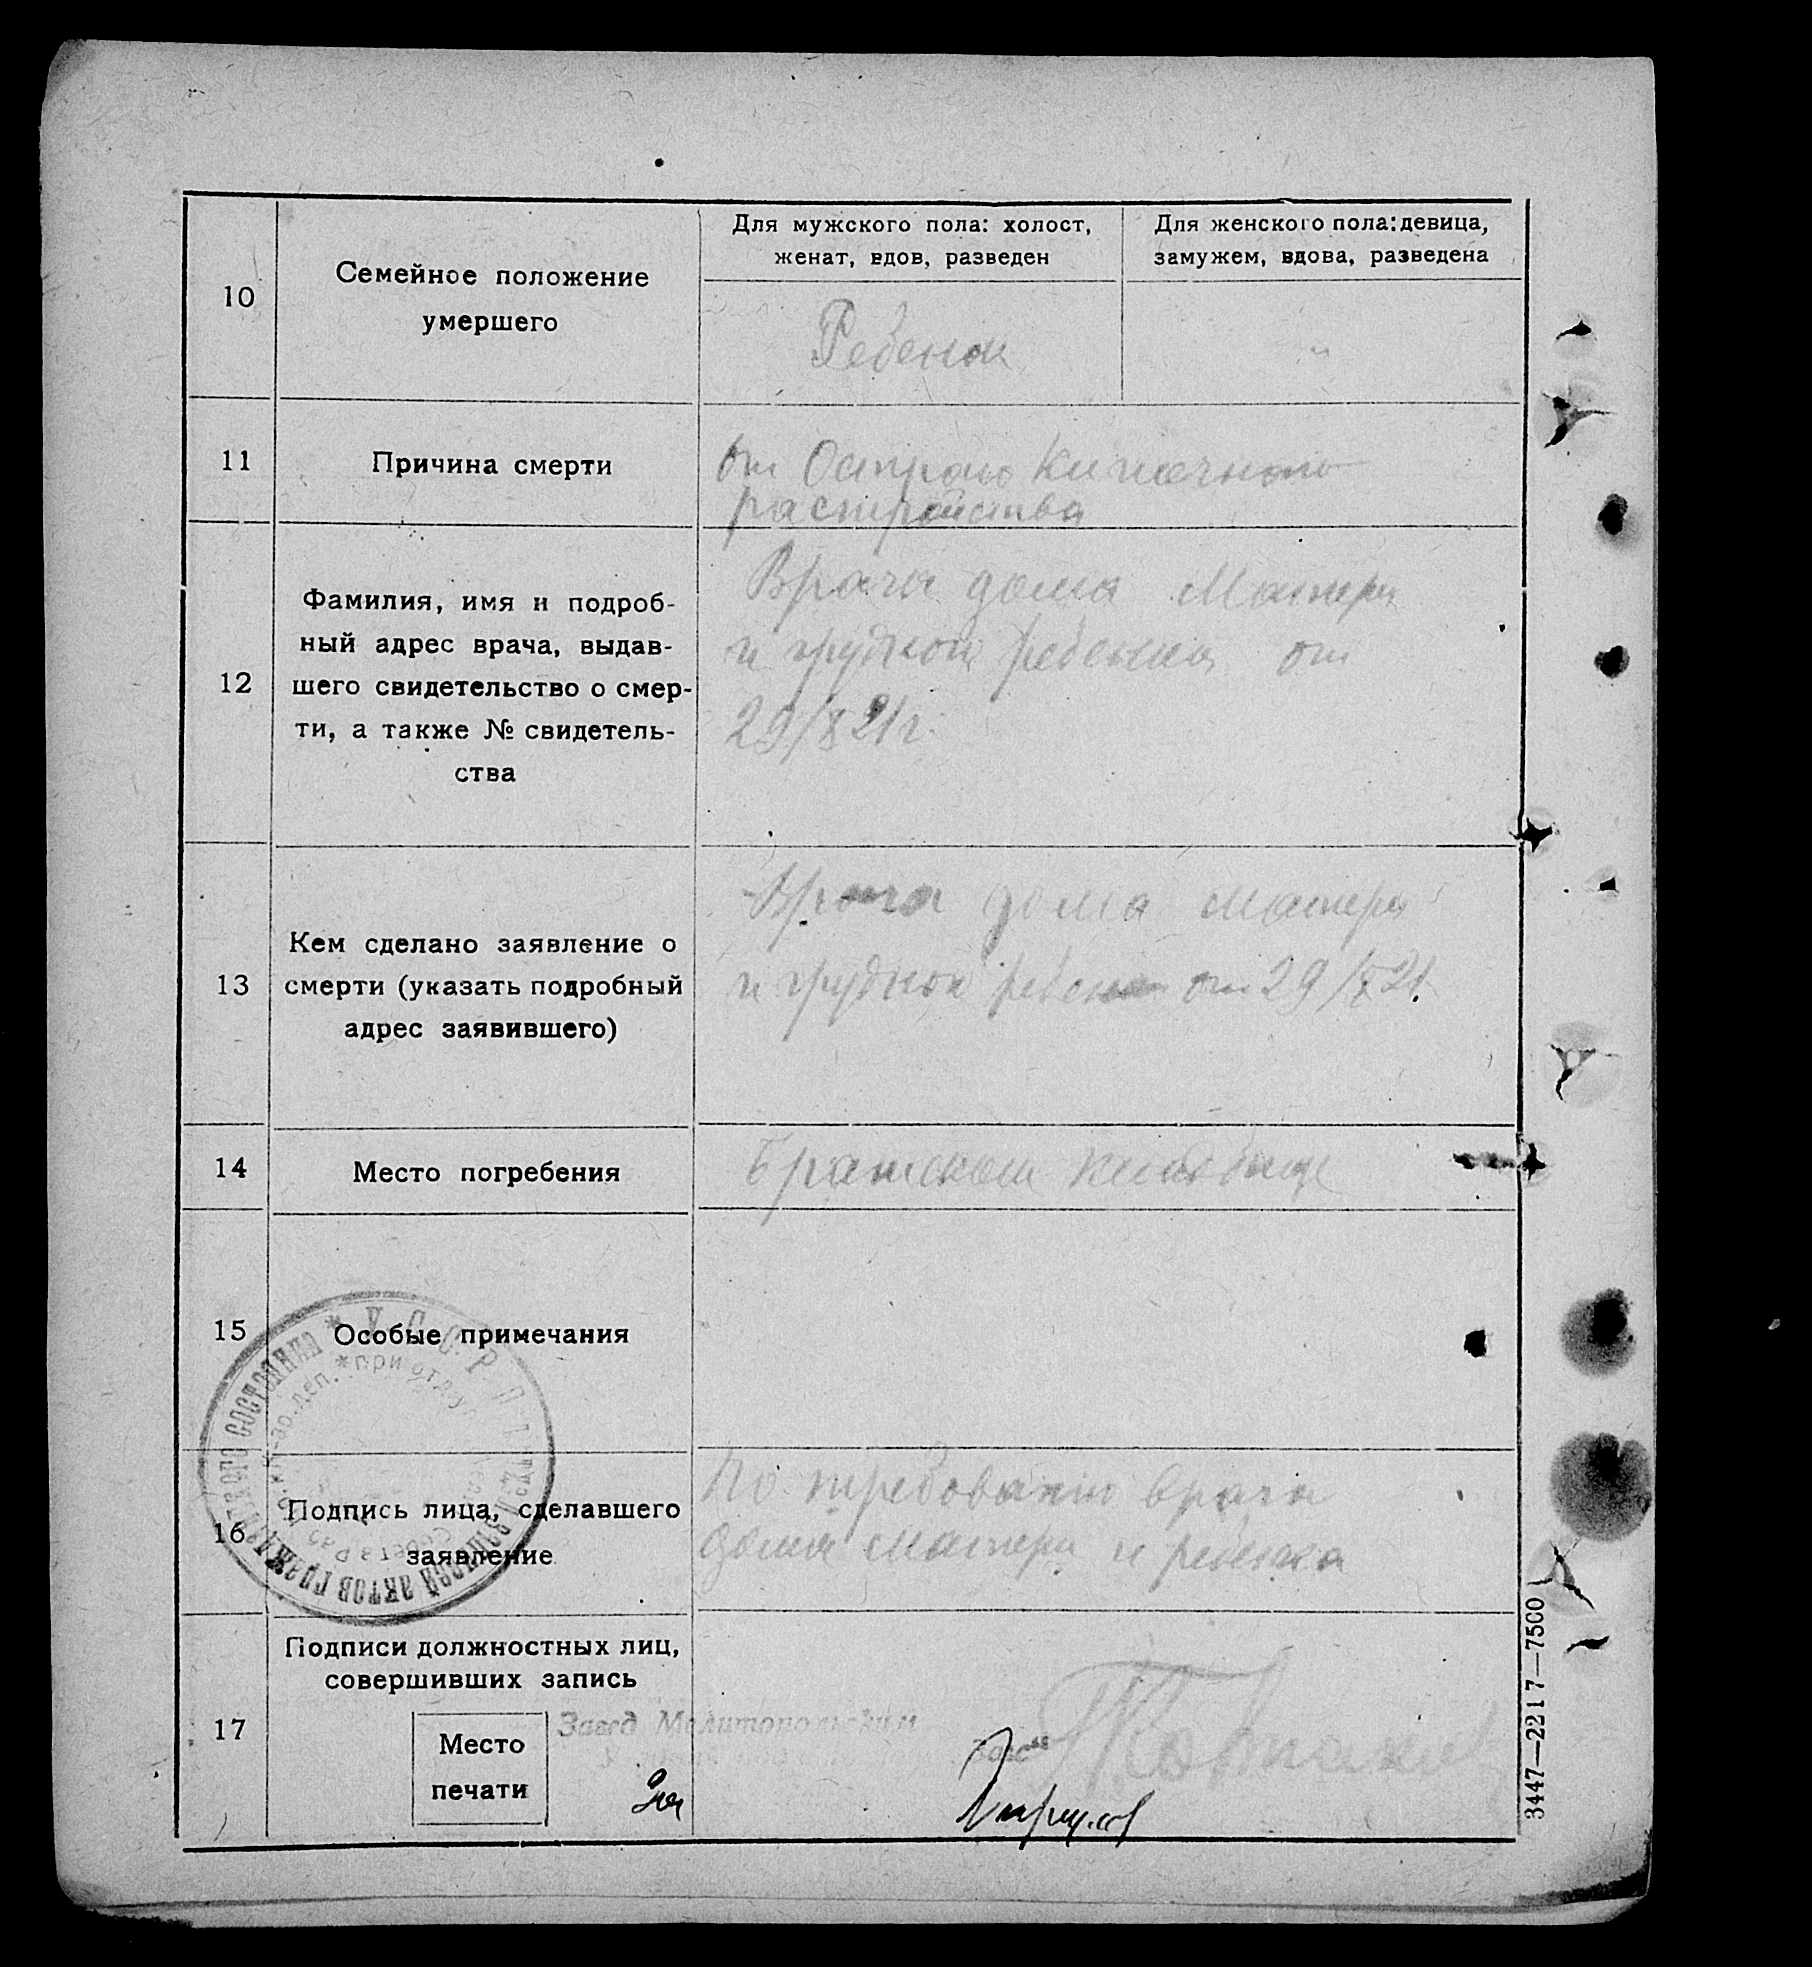 10
Семейное положение
умершего
Для мужского пола: холост,
женат, вдов, разведен
Для женского пола: девица,
замужем, вдова, разведена
Ребенок
"
11
Причина смерти
от Острого Кишечного
растройства
12
Фамилия, имя и подроб-
ный адрес врача, выдав-
шего свидетельство о смер-
ти, а также № свидетель-
ства
Врача дома Матери
и грудного ребенка от
29/X 21г.
13
Кем сделано заявление о
смерти (указать подробный
адрес заявившего)
Врача дома матери
и грудного ребенка от 29/X 21.
14
Место погребения
Братском кладбище
15
Особые примечания
16
Подпись лица, сделавшего
заявление
По требованию врача
дома матери и ребенка
17
Подписи должностных лиц,
совершивших запись
Место
печати
Завед. Мелитопольским
Загс"
* У. С. С. Р. * Отдел записей актов гражданского состояния
3447—2217—7500